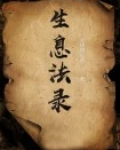 生息法录